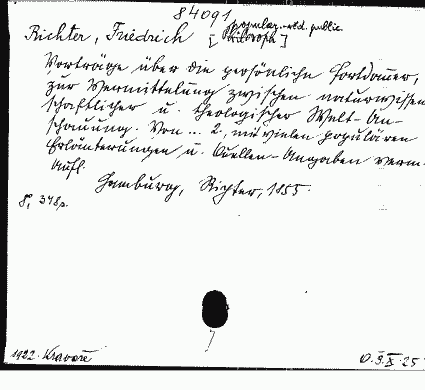 84091
popular-rel. public.
Richter, Friedrich [Philosoph]
Vorträge über die persönliche Fortdauer,
zur Vermittelung zwischen naturwissen
schaftlicher u. theologischer Welt-An-
schauung. Von ... 2, mit vielen populären
Erläuterungen u. Quellen-Angaben verm.
Aufl.
Hamburg, Richter, 1855.
8°, 378 p.
1922. Kravaře